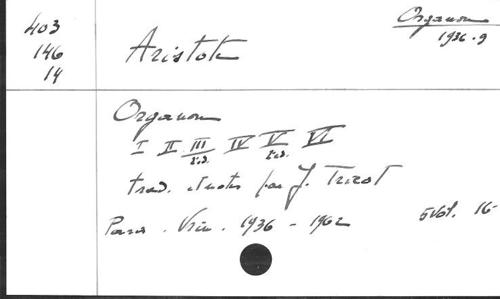 403
146
14
Aristote
Organon
1936-9
Organon
I II III IV V VI
2 éd. 2 éd.
trad. et notes par J. Tricot
Paris. Vrin. 1936 - 1962 5 vol. 16-